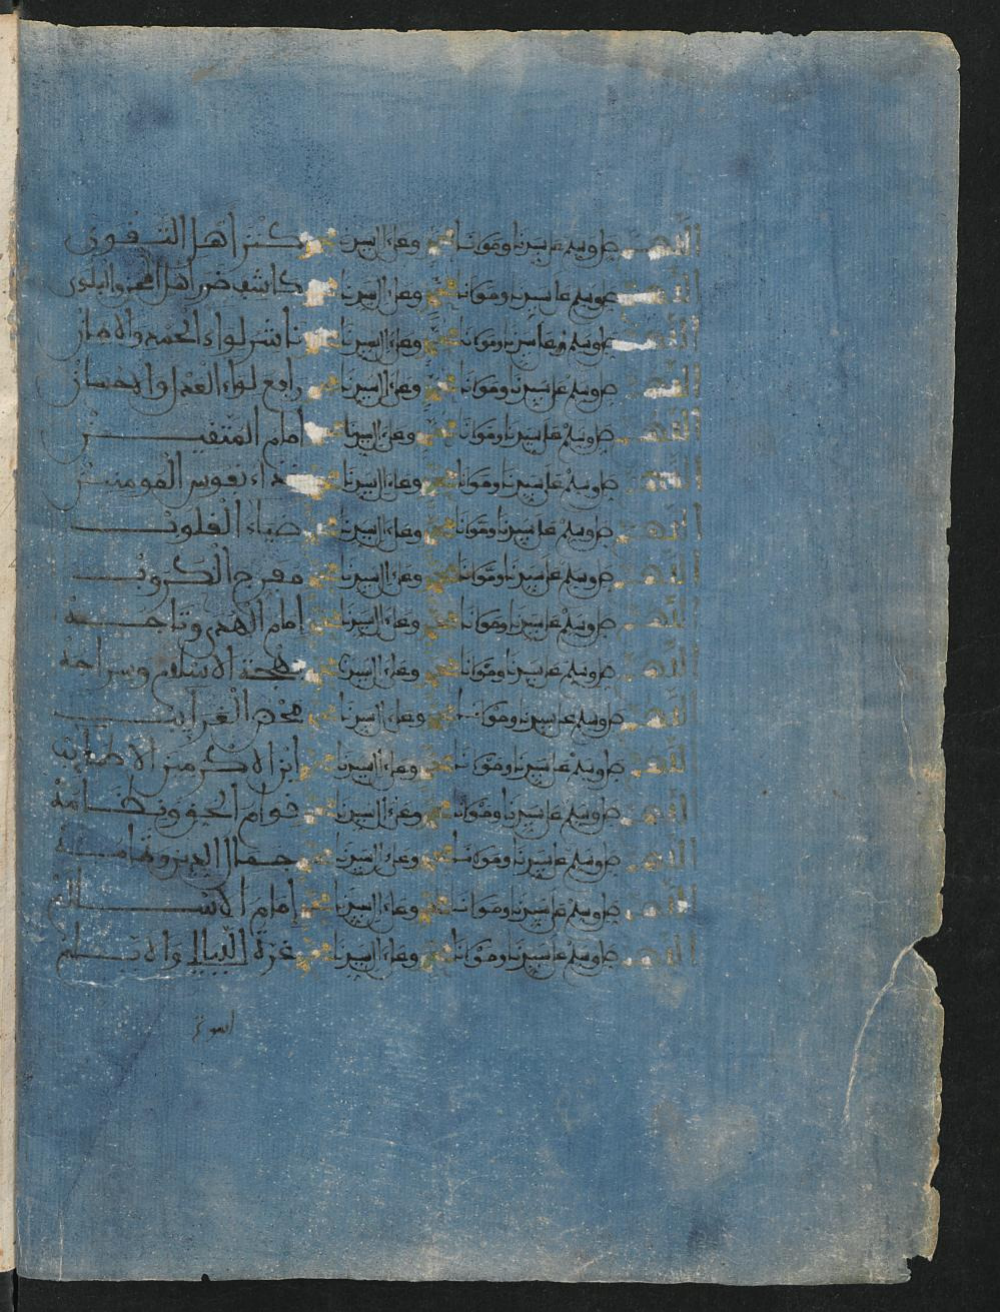 اللهم صل وسلم على سيدنا ومولانا محمد وعلى ءال سيدنا محمد كنز أهل التقوى
اللهم صل وسلم على سيدنا ومولانا محمد وعلى ءال سيدنا محمد كاشف ضر أهل
اللهم صل وسلم على سيدنا ومولانا محمد وعلى ءال سيدنا محمد ناشر لواء الحمد
اللهم صل وسلم على سيدنا ومولانا محمد وعلى ءال سيدنا محمد رافع لواء العدل والاحسان
اللهم صل وسلم على سيدنا ومولانا محمد وعلى ءال سيدنا محمد إمام المتقين
اللهم صل وسلم على سيدنا ومولانا محمد وعلى ءال سيدنا محمد نفوس المومنين
اللهم صل وسلم على سيدنا ومولانا محمد وعلى ءال سيدنا محمد ضياء القلوب
اللهم صل وسلم على سيدنا ومولانا محمد وعلى ءال سيدنا محمد مفرج الكروب
اللهم صل وسلم على سيدنا ومولانا محمد وعلى ءال سيدنا محمد إمام الهدى وتاجه
اللهم صل وسلم على سيدنا ومولانا محمد وعلى ءال سيدنا محمد الاسلام وسراجه
اللهم صل وسلم على سيدنا ومولانا محمد وعلى ءال سيدنا محمد الغرايب
اللهم صل وسلم على سيدنا ومولانا محمد وعلى ءال سيدنا محمد ابن الاكرمين الاطايب
اللهم صل وسلم على سيدنا ومولانا محمد وعلى ءال سيدنا محمد قوام الحق ونظامه
اللهم صل وسلم على سيدنا ومولانا محمد وعلى ءال سيدنا محمد جمال الدين
اللهم صل وسلم على سيدنا ومولانا محمد وعلى ءال سيدنا محمد إمام
اللهم صل وسلم على سيدنا ومولانا محمد وعلى ءال سيدنا محمد غرة الليالي والايام